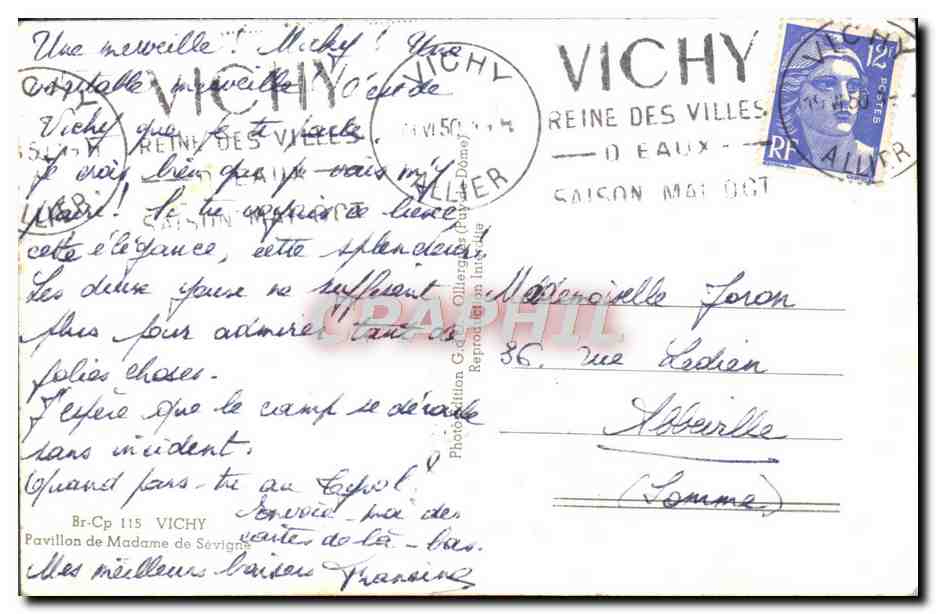 Une merveille ! Micky ! Une
véritable merveille ! C'est de
Vichy que je te parle.
Je crois bien que je vais m'y
plaire ! Si tu voyais ce luxe
cette élégance, cette splendeur !
Les deux yeux ne suffisent
plus pour admirer tant de
jolies choses.
J'espère que le camp se déroule
sans incident.
Quand pars-tu au Tyrol !
Envoie-moi des
cartes de là-bas.
Mes meilleurs baisers Francine
Br-Cp 115 VICHY
Pavillon de Madame de Sévigné
Photo-édition G. d'O Olliergues (Puy-de-Dôme)
Reproduction Interdite
VICHY
REINE DES VILLES
D'EAUX
SAISON MAI OCT
VICHY
VI 50
ALLIER
VICHY
REINE DES VILLES
D EAUX
SAISON MAI OCT
VICHY
15 VI 50
ALLIER
12F
POSTES
RF
Mademoiselle Joron
36, rue Ledien
Abbeville
(Somme)
CPAPHIL